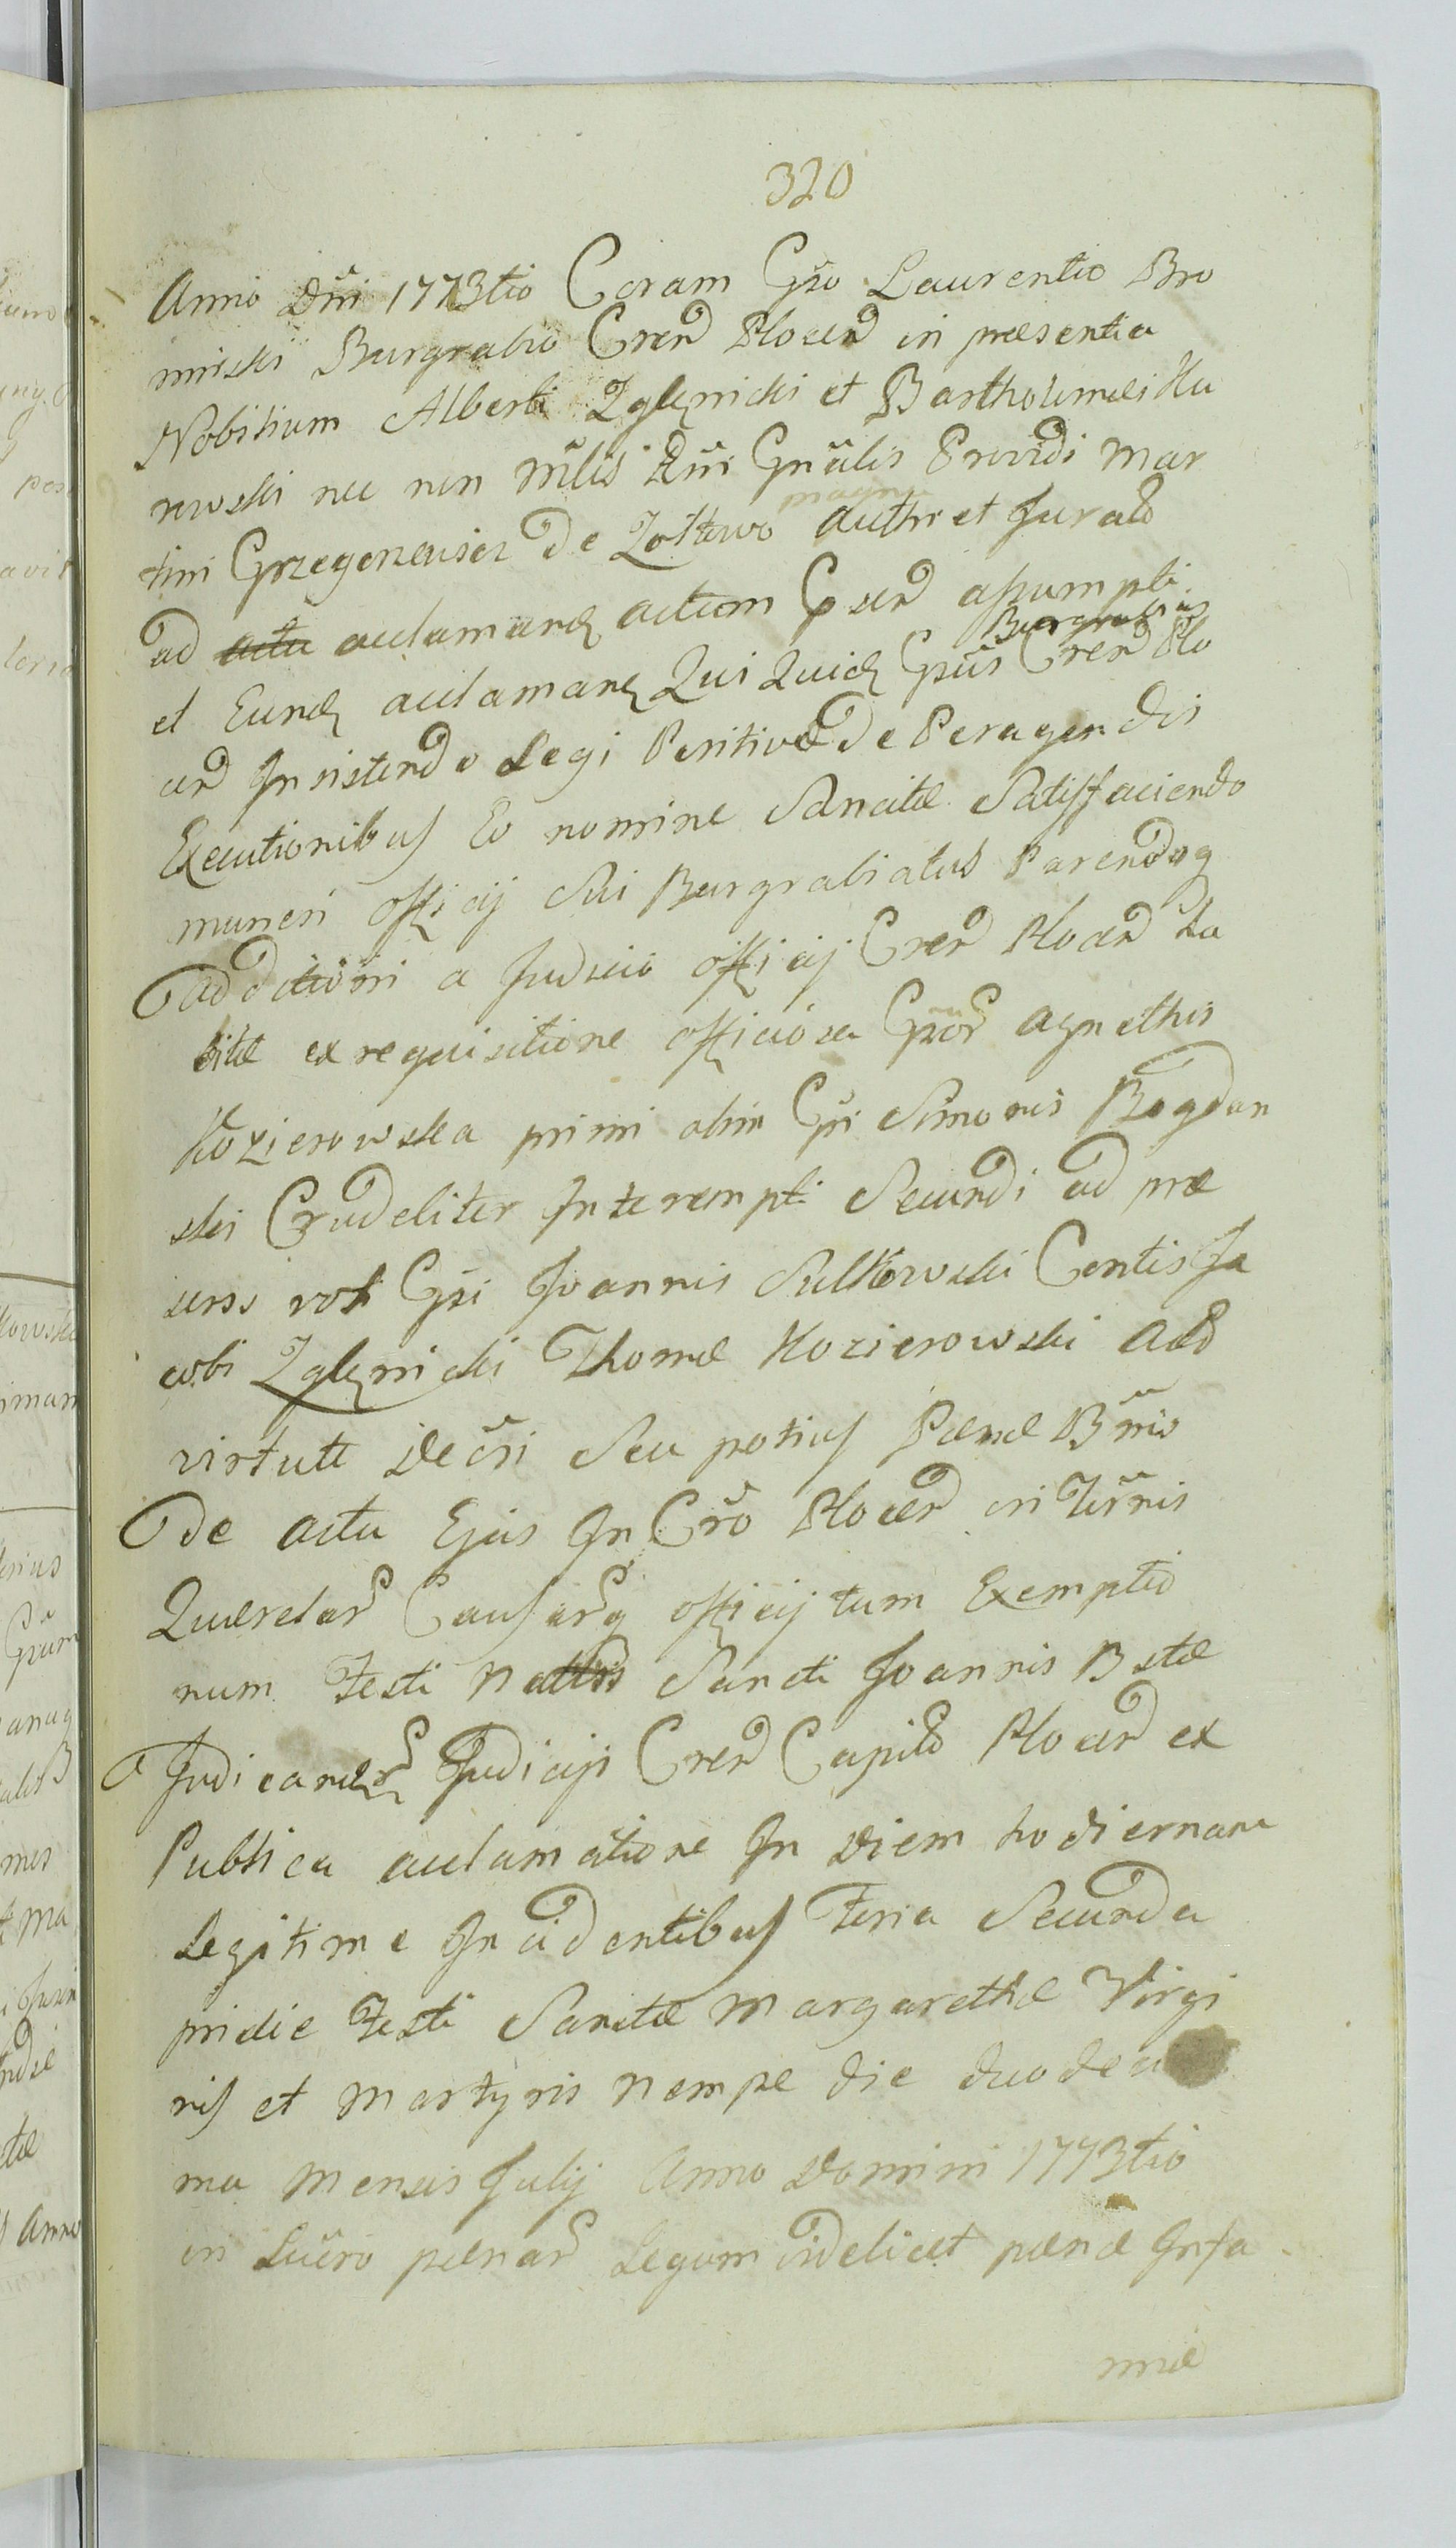 320
Anno Dñi 1773tio Coram Gõso Laurentio Bro
mirski Burgrabio Cren̄ Plocen̄ in præsentia
Nobilium Alberti Zglęnicki et Bartholemæi Ku
rowski nec non Mĩlis Rñi Gnãlis Providi Mar
tini Grzegorzewicz De Zołtowo Authr et Jurat
ad actu acclamand actum assumpti
et Eund acclamand Qui Quid Gõsus Burgrabius Cren̄ Plo
cen̄ Insistendo Legi Positivæ De Peragendis
Executionibus Eo nomine Sancitæ Satisfaciendo
muneri officij Sui Burgrabiatus Parendoq
additioni a Judicio officij Cren̄ Plocen̄ Ha
bitæ ex requisitione officiosa Gõsor Agnethis
Kozierowska primi olim Gõsi Simonis Bogdan
ski Crudeliter Interempti Secundi ad præ
sens vot Gõsi Joannis Sulkowski Contis Ja
cobi Zglęnicki Thomæ Kozierowski Act
virtute Decri Seu potius Pænæ Bñnis
De actu Ejus In Crõ Plocen̄ in Trñis
Querelar Causarq officij tum Exemptio
num Festi Nattis Sancti Joannis Btæ
Judicandr Judicij Cren̄ Capit Plocen̄ ex
Publica acclamatione In Diem hodiernam
Legitime Incidentibus Feria Secunda
pridie Festi Sanctæ Margarethæ Virgi
nis et Martyris nempe die duodeci
ma Mensis Julij Anno Domini 1773tio
in Lucro pænar Legum videlicet pænæ Infa
miæ